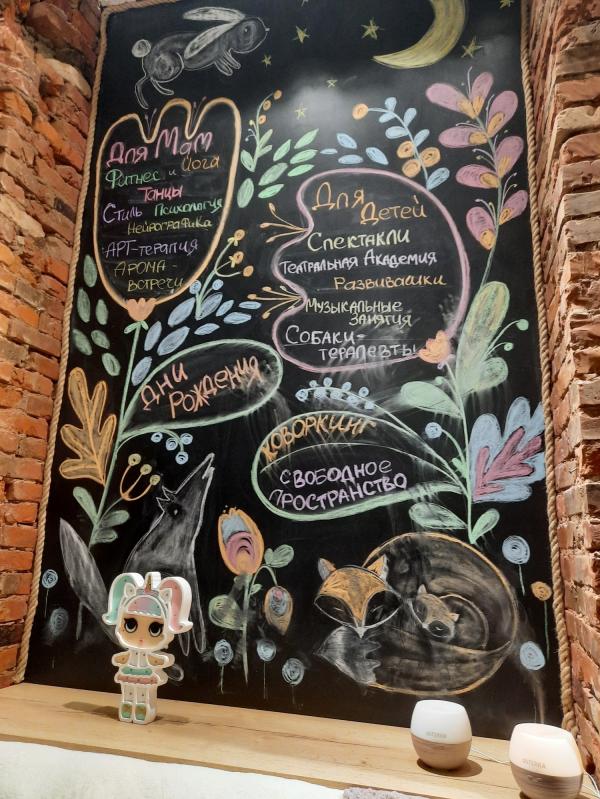 Для Мам
Фитнес и Йога
Танцы
Стиль Психология
Нейрографика
АРТ-терапия
Арома-
встречи
Для
Детей
Спектакли
Театральная Академия
Развивашки
Музыкальные
занятия
Собаки-
терапевты
Дни
рождения
Коворкинг
Свободное
пространство